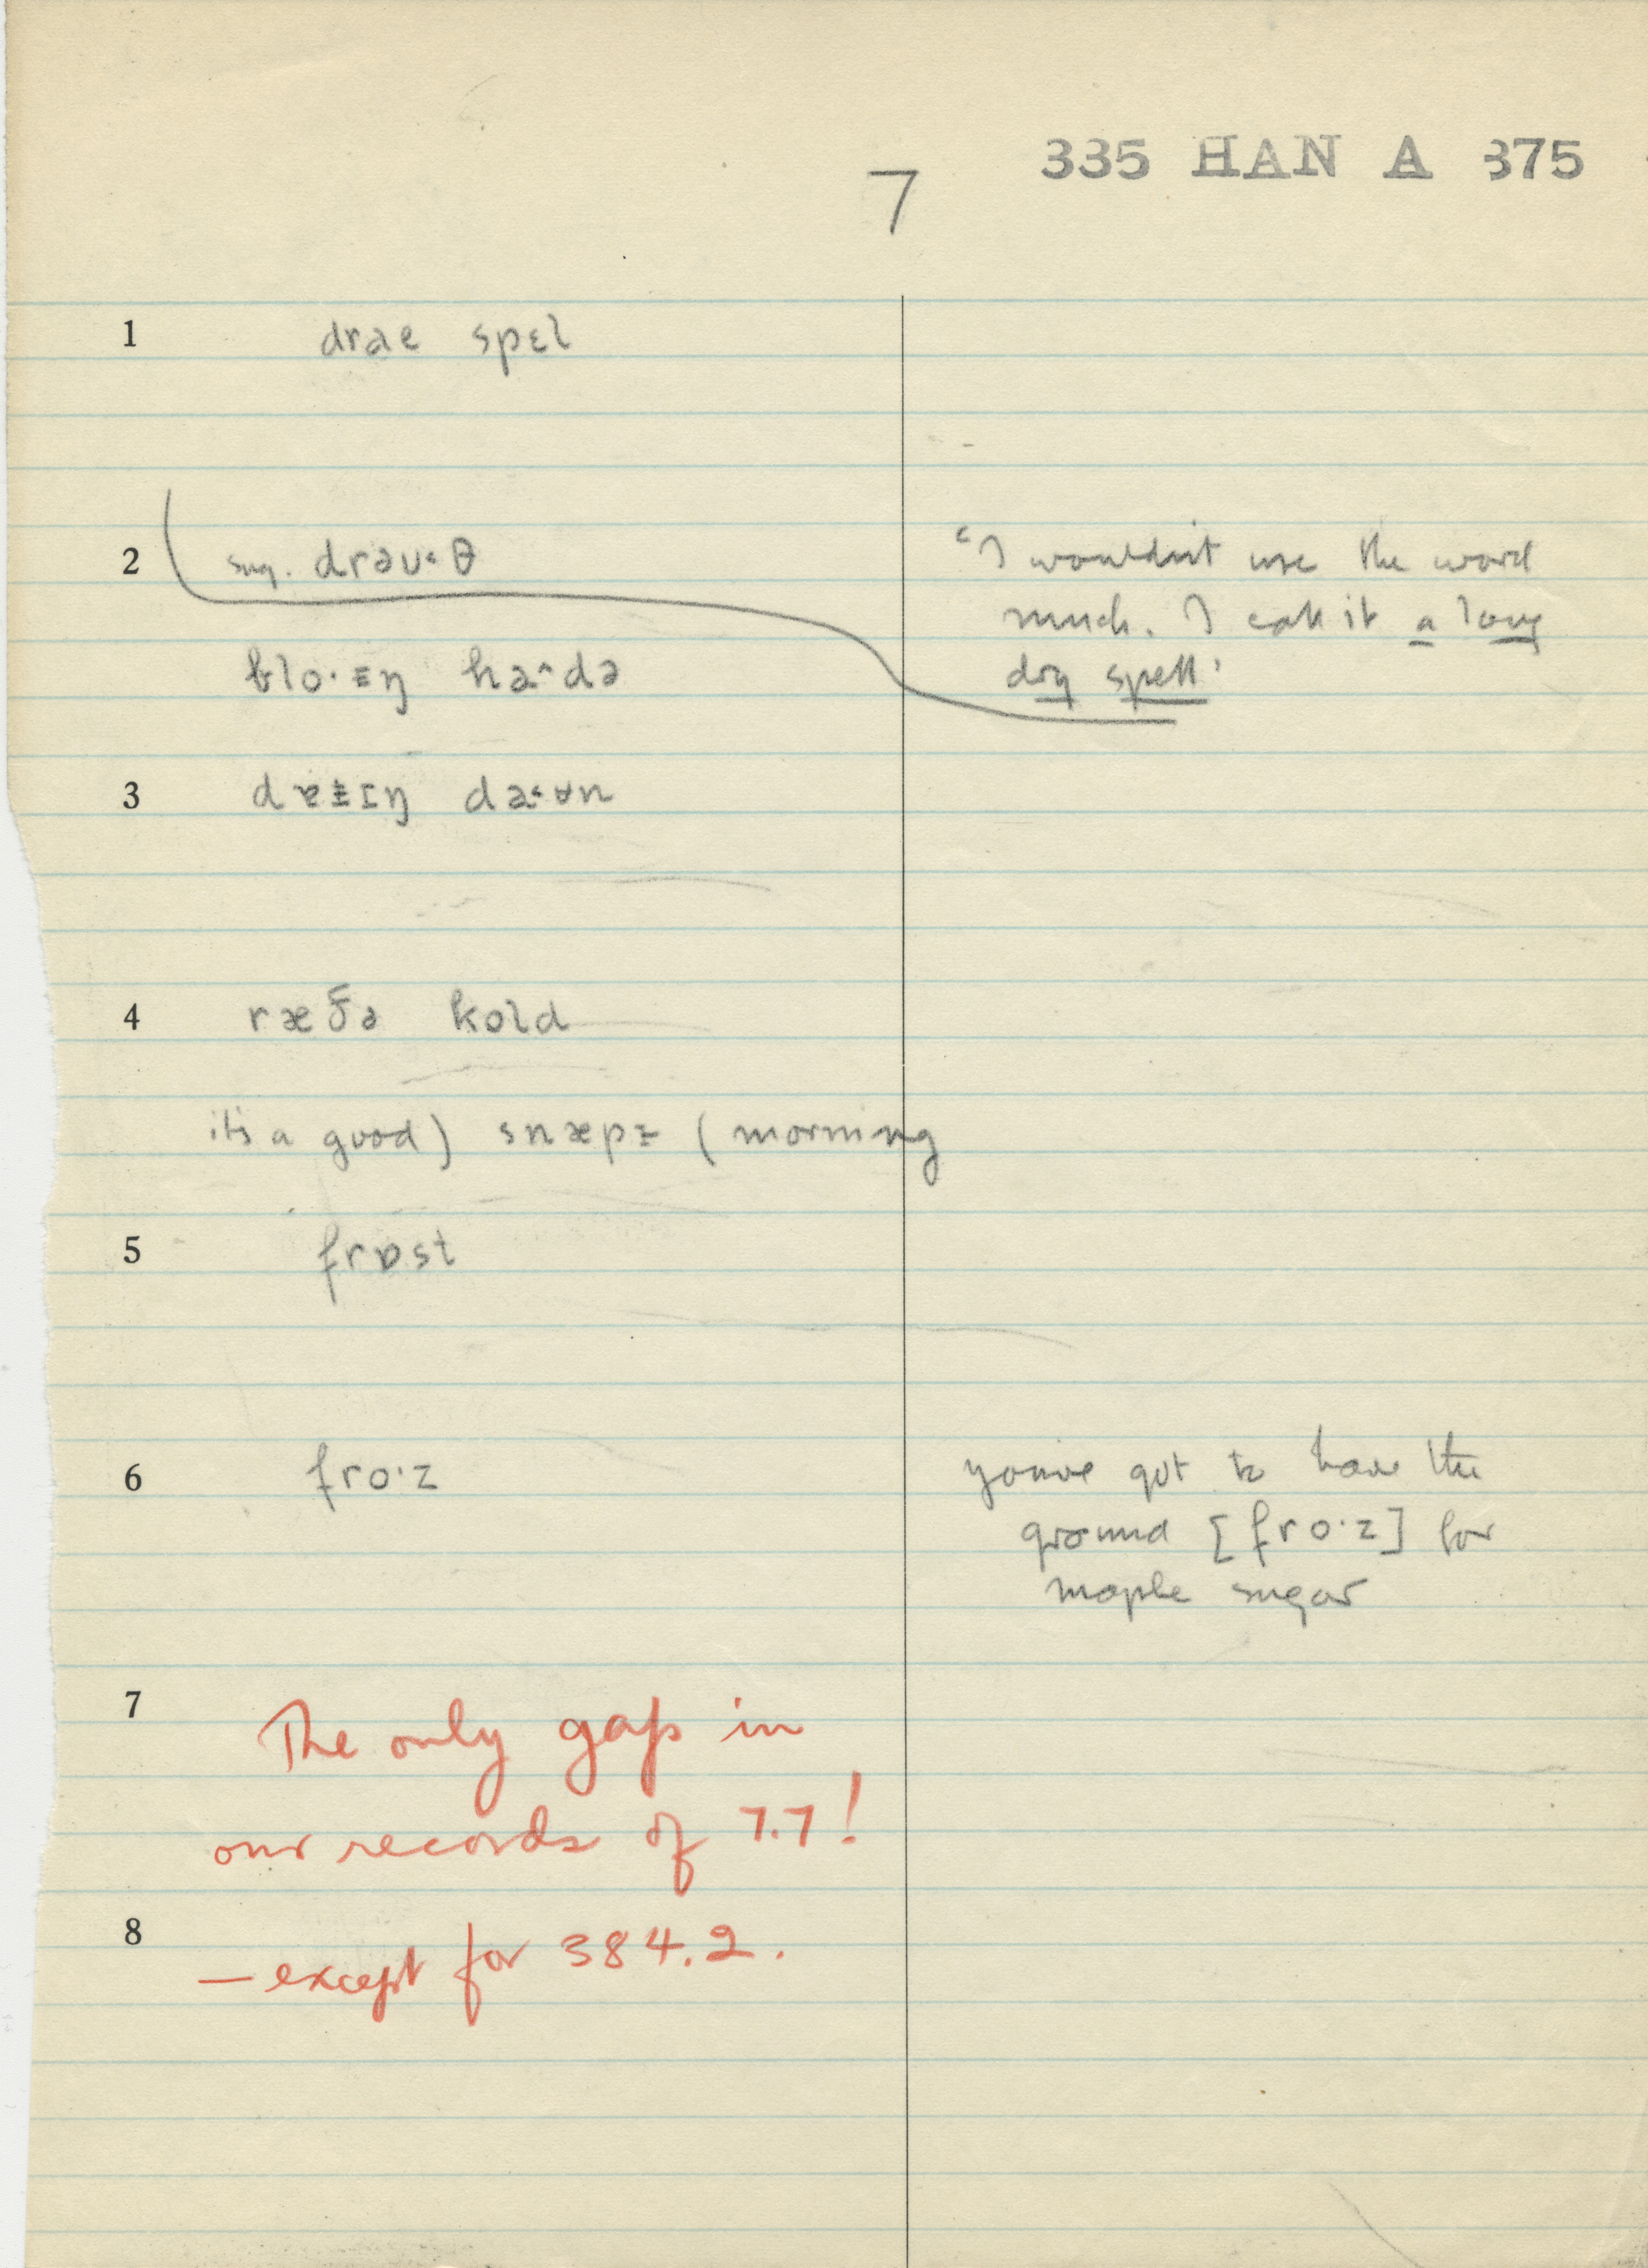 335 HAN A 375
7
1 drae spɛl
2 sug. drəʊ˂θ
"I wouldn't use the word
much. I call it a long
dry spell'
blo·ɪŋ ha^də
3 da˂ʉn
4 ræðə kold
it's a good) snæpɪ (morning
5 frɒst
6 fro·z
you've got to have the
ground [fro·z] for
maple sugar
7 The only gap in
our records of 7.7!
8 —except for 384.2.